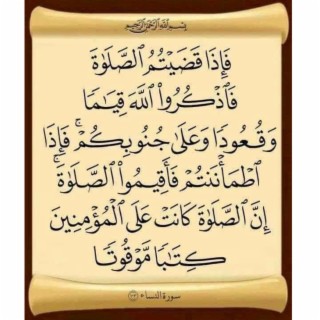 بسم الله الرحمن الرحيم
فَإِذَا قَضَيْتُمُ الصَّلَوٰةَ
فَاذْكُرُوا۟ اللَّهَ قِيَـٰمًا
وَقُعُودًا وَعَلَىٰ جُنُوبِكُمْ ۚ فَإِذَا
اطْمَأْنَنتُمْ فَأَقِيمُوا۟ الصَّلَوٰةَ ۚ
إِنَّ الصَّلَوٰةَ كَانَتْ عَلَى الْمُؤْمِنِينَ
كِتَـٰبًا مَّوْقُوتًا
سورة النساء